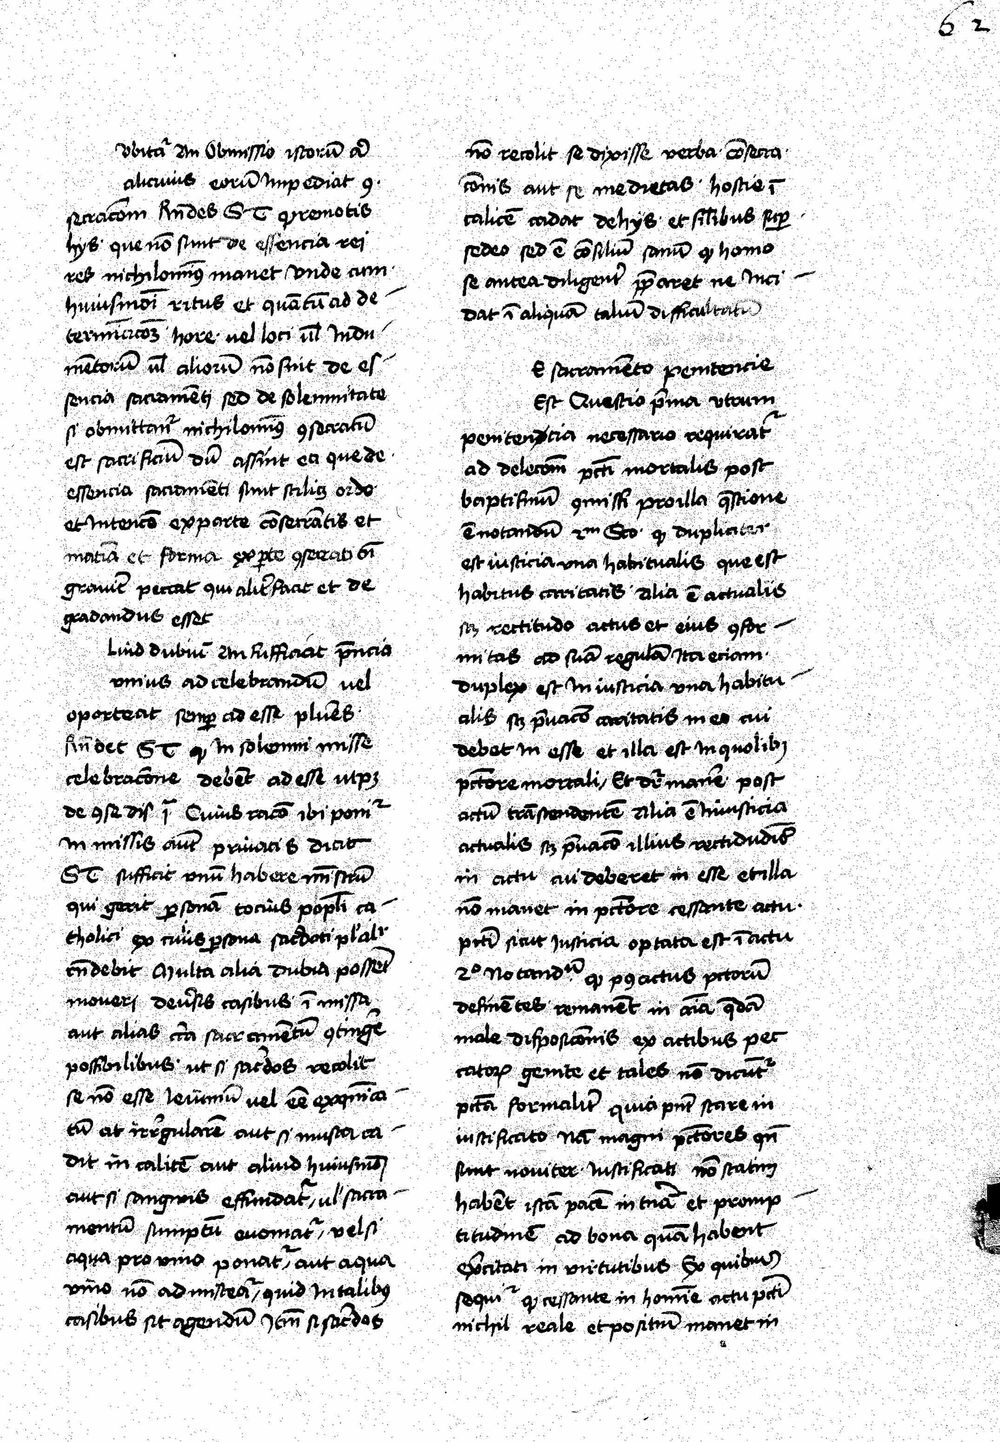 62
vbitat̄ an Obmissio istorū aƌ
alicuius eorū Impediat ꝯ
secracōm Rn̄des S T q remotis
hys que nō sunt de essencia rei
res nichilomīꝯ manet vnde cum
huiusmōi ritus et quātū ad de
termīacōꝫ hore vel loci vl̄ Indu
mētorū vl̄ aliorū nō sūt de es
sencia sacramēti sed de solemnitate
si obmittant̄ nichilomīꝯ ꝯsecratū
est sacrificiū dū assīnt ea que de
essencia sacramēti sunt scilicꝫ ordo
et Intencō ex parte cōsecrātis et
matīa et forma ex ꝑte ꝯsecrati Sꝫ
graviт̄ peccat qui alit̄ facit et de
gradandus esset
Liud dubiū An Sufficiat p̄ncia
vnius ad celebrandū vel
oporteat semꝑ ad esse plures
Rn̄det S T ꝙ In solemni misse
celebracōne debēt ad esse utpꝫ
de ꝯse dis ī Cuius racō ibi poniт̄
In missis aūt priuatis dicit
S T sufficit vnū habere mīstrū
qui gerit ꝑsonā tocius popl̄i ca
tholici ex cuiꝯ ꝑsona sacr̄doti pl̄alr̄
rn̄debit Multa alia dubia possēt
moueri deu̓sis casibus ī missa
aut alias cr̄a sacramentū ꝯtingē
possibilibus ut si sacr̄dos recolit
se nō esse Ieiunū vel eē excōmīca
tū at irr̓gularē aut si musca ca
dit in calicē aut aliud huiusmōi
aut si sanguis effundat̄ vl̓ sacra
mentū sumptū euomat̄ vel si
aqua pro vino ponat̄ aut aqua
vino nō admisceat̄ quid In talibꝯ
casibus sit agendū Itē si sacr̄dos
nō recolit se dixisse verba cōsecra
cōnis aut si medietas hostie ī
calicē cadat de hys et sil̄ibus suꝑ
sedeo sed ē cōsiliū sanū ꝙ homo
se antea diligent̄ p̄paret ne Inci
dat ī aliquā taliū difficultatū
E sacramēto penitencie
Est Questio p̄ma vtrum
penitencia necessario requirat̄
ad delecōm pctī mortalis post
baptismū ꝯmissi Pro illa q̄stione
ē notandū 2m Sco ꝙ dupliciter
est iusticia vna habitualis que est
habitus caritatis Alia ē actualis
scꝫ rectitudo actus et eius ꝯfor
mitas ad suā regulā Ita eciam
duplex est Iniusticia vna habitu
alis scꝫ p̄uacō caritatis in eo cui
debet In esse et illa est In quolibꝫ
pctōre mortali Et dr̄ manē post
actū trāscendentē Alia ē Iniusticia
actualis scꝫ p̄uacō illius rectidudīs
in actu cui deberet in esse et illa
nō manet in pctōre cessante actu
pctī sicut Iusticia optata est ī actu
2o Notandū ꝙ pꝯ actus pctorū
definētes remanēt in aīa q̄dā
male disposicōnis ex actibus pec
catorꝫ genite et tales nō dicūt̄
pctā formalit̄ quia pn̄t stare in
iustificato Nā magni pctōres qn̄
sunt noviter Iustificati nō statim
habēt istā pacē in tr̄a et promp
titudinē ad bona quā habent
exercitati in virtutibus Ex quibus
sequiт̄ ꝙ cessante in homīe actu pctī
nichil reale et positiuū manet in